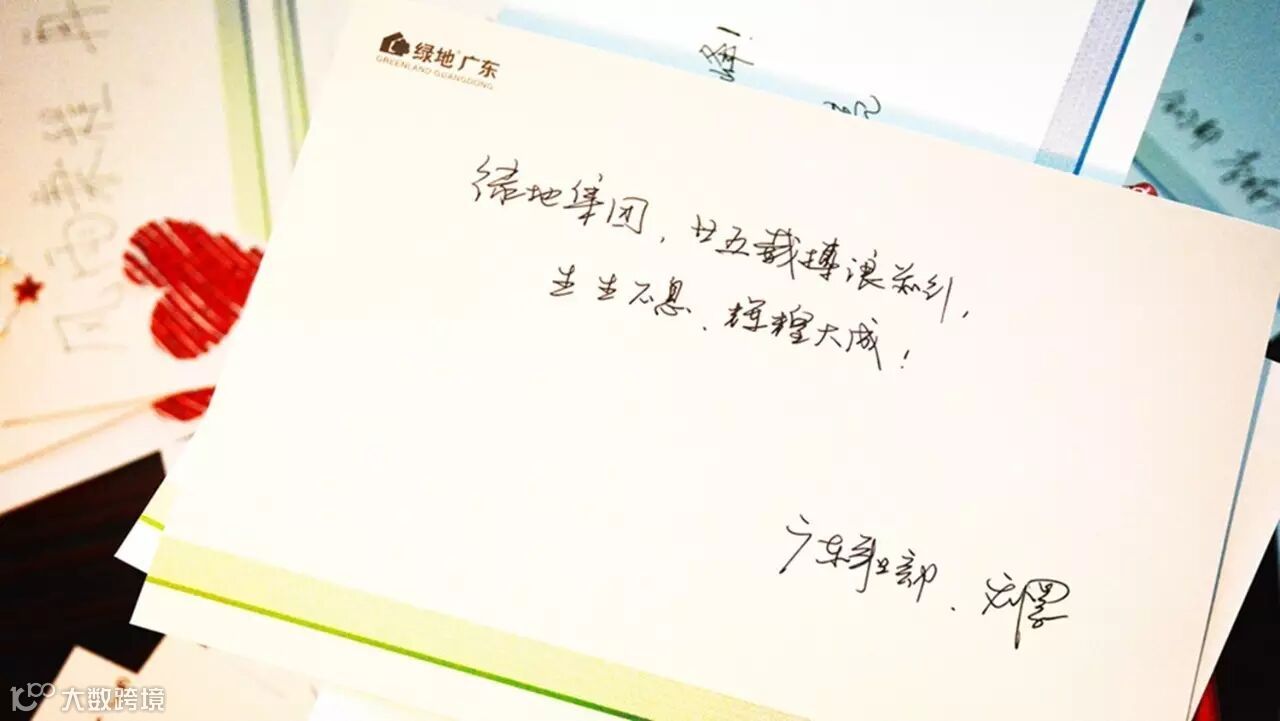 绿地 广东
GREENLAND GUANGDONG
绿地集团，廿五载搏浪前行，
生生不息、辉煌大成！
广东事业部、
风雨兼程
大数跨境